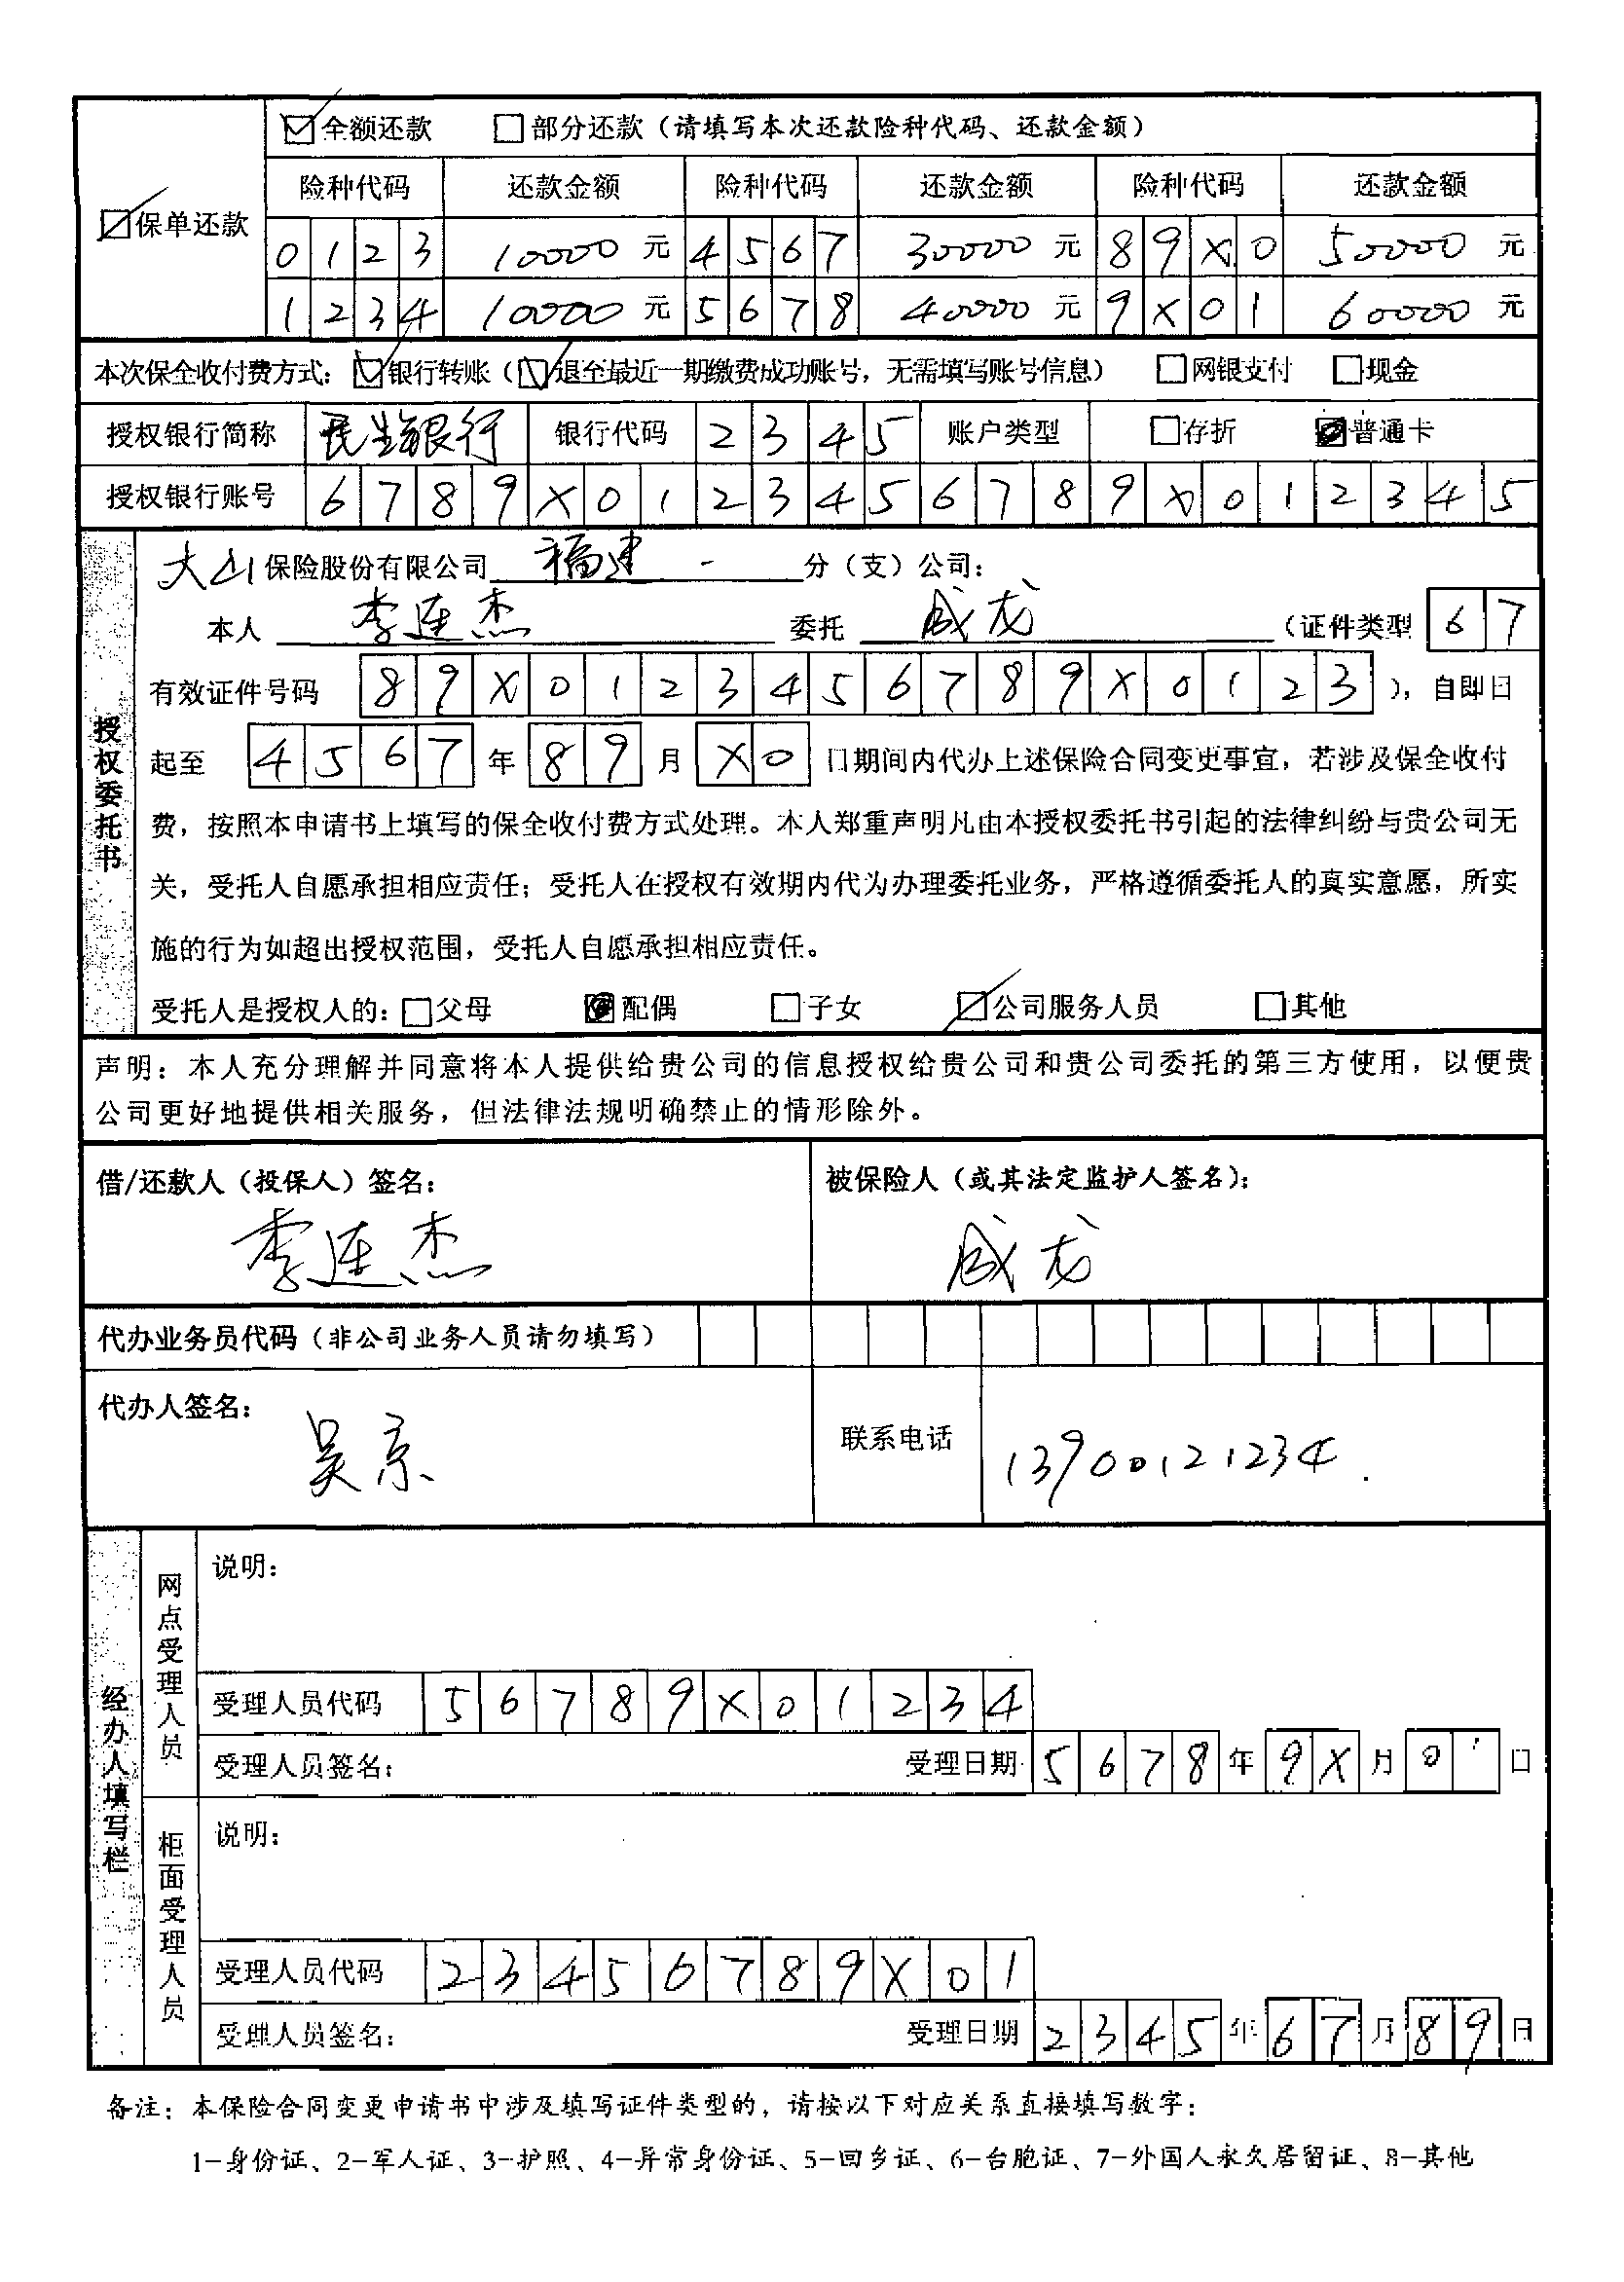 ☑全额还款 □部分还款（请填写本次还款险种代码、还款金额）
险种代码 还款金额 险种代码 还款金额 险种代码 还款金额
☑保单还款
0123 10000 元 4567 30000 元 89X0 50000 元
1234 10000 元 5678 40000 元 9X01 60000 元
本次保全收付费方式：☑银行转账（☑退至最近一期缴费成功账号，无需填写账号信息） □网银支付 □现金
授权银行简称 民生银行 银行代码 2345 账户类型 □存折 ☑普通卡
授权银行账号 6789X0123456789X012345
授权委托书
大山保险股份有限公司 福建 分（支）公司：
本人 李连杰 委托 成龙 （证件类型 67
有效证件号码 89X0123456789X0123 ），自即日
起至 4567 年 89 月 X0 日期间内代办上述保险合同变更事宜，若涉及保全收付
费，按照本申请书上填写的保全收付费方式处理。本人郑重声明凡由本授权委托书引起的法律纠纷与贵公司无
关，受托人自愿承担相应责任；受托人在授权有效期内代为办理委托业务，严格遵循委托人的真实意愿，所实
施的行为如超出授权范围，受托人自愿承担相应责任。
受托人是授权人的：□父母 ☑配偶 □子女 ☑公司服务人员 □其他
声明：本人充分理解并同意将本人提供给贵公司的信息授权给贵公司和贵公司委托的第三方使用，以便贵
公司更好地提供相关服务，但法律法规明确禁止的情形除外。
借/还款人（投保人）签名： 被保险人（或其法定监护人签名）：
李连杰 成龙
代办业务员代码（非公司业务人员请勿填写）
代办人签名：
吴京 联系电话 13900121234
经办人填写栏
网点受理人员
说明：
受理人员代码 56789X01234
受理人员签名： 受理日期 5678 年 9X 月 01 日
柜面受理人员
说明：
受理人员代码 23456789X01
受理人员签名： 受理日期 2345 年 67 月 89 日
备注：本保险合同变更申请书中涉及填写证件类型的，请按以下对应关系直接填写数字：
1-身份证、2-军人证、3-护照、4-异常身份证、5-回乡证、6-台胞证、7-外国人永久居留证、8-其他